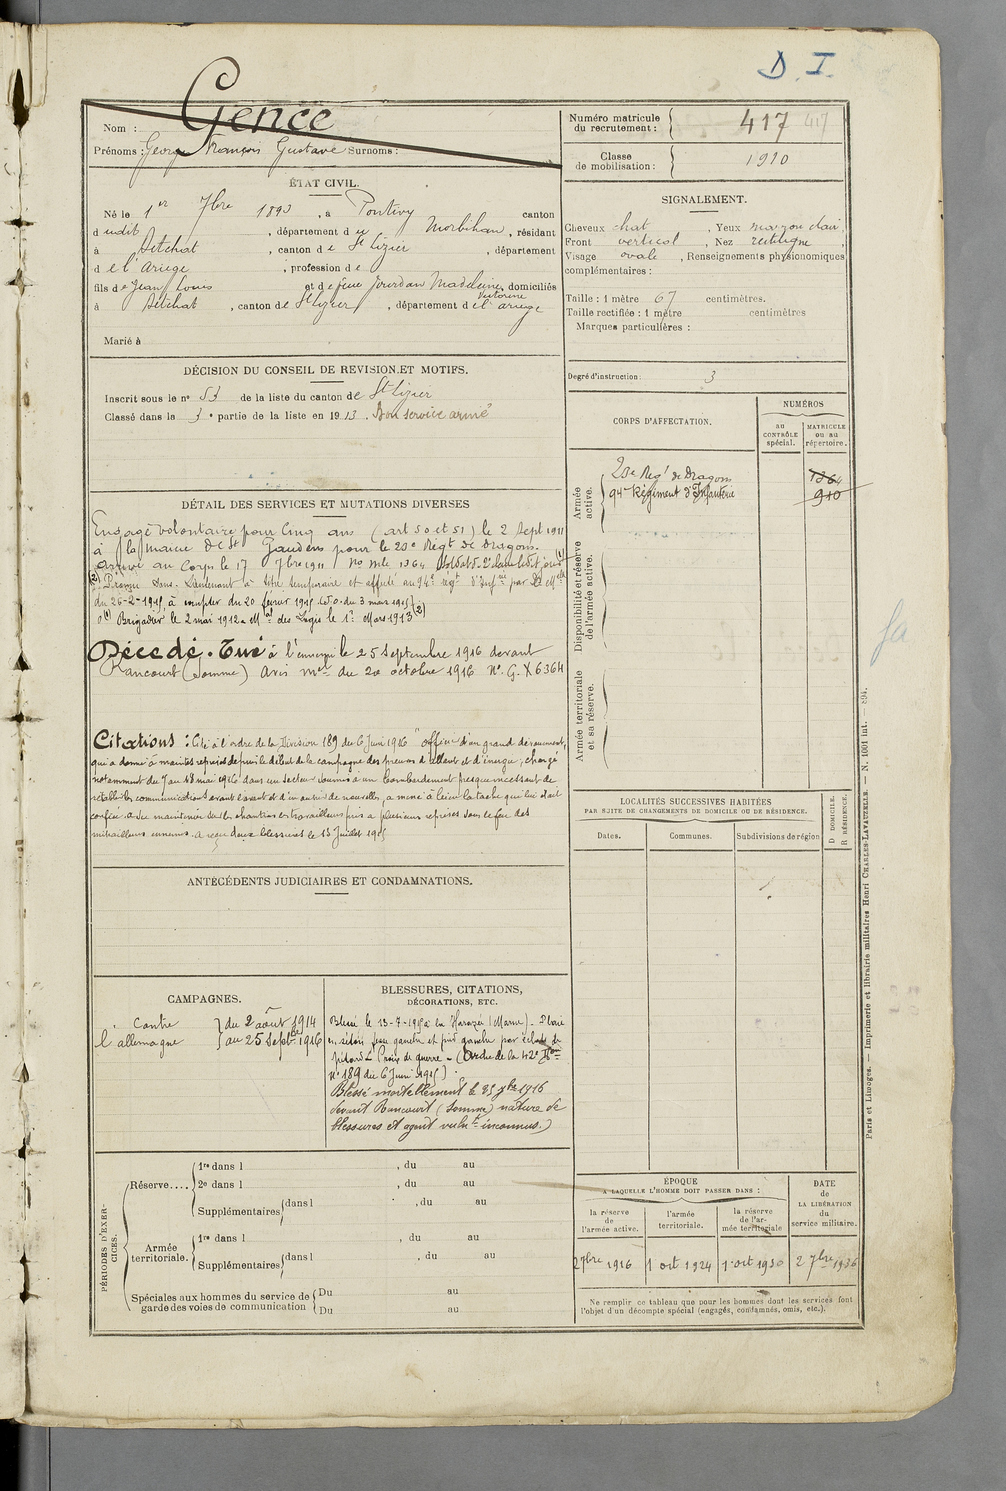 D. I.
Nom : Gence
Prénoms : George François Gustave Surnoms :
Numéro matricule du recrutement : 417 417
Classe de mobilisation : 1910
ÉTAT CIVIL.
Né le 1er 7bre 1893, à Pontivy canton
dudit, département du Morbihan, résidant
à Betchat, canton de St Lizier, département
de l'Ariège, profession de
fils de Jean Louis et de feue Jourdan Madeleine Victorine, domiciliés
à Betchat, canton de St Lizier, département de l'ariège
Marié à
SIGNALEMENT.
Cheveux chat, Yeux marron clair,
Front vertical, Nez rectiligne,
Visage ovale, Renseignements physionomiques
complémentaires :
Taille : 1 mètre 67 centimètres.
Taille rectifiée : 1 mètre centimètres
Marques particulières :
Degré d'instruction : 3
DÉCISION DU CONSEIL DE REVISION ET MOTIFS.
Inscrit sous le no 53 de la liste du canton de St Lizier
Classé dans la 3e partie de la liste en 1913. Bon service armé
CORPS D'AFFECTATION.
NUMÉROS
au CONTRÔLE spécial.
MATRICULE ou au répertoire.
Armée active.
20e Regt de Dragons 1364
94me Régiment d'Infanterie 910
Disponibilité et réserve de l'armée active.
Armée territoriale et sa réserve.
DÉTAIL DES SERVICES ET MUTATIONS DIVERSES
Engagé volontaire pour cinq ans (art 50 et 51) le 2 Sept 1911
à la mairie de St Gaudens pour le 20e Régt de Dragons.
arrivé au Corps le 17 7bre 1911 No mle 1364 Soldat de 2e classe ledit jour (1)
(2) Promu Sous-Lieutenant à titre temporaire et affecté au 94e régt d'Infrie par
du 26-2-1915, à compter du 20 février 1915 (J.O. du 3 mars 1915)
(1) Brigadier le 2 mai 1912 Mal des Logis le 1er Mars 1913 (2)
Décédé. Tué à l'ennemi le 25 Septembre 1916 devant
Rancourt (Somme) Avis mel du 20 octobre 1916 No. G. X 6364
Citations : Cité à l'ordre de la Division 189 du 6 Juin 1916 "officier d'un grand dévouement,
qui a donné à maintes reprises depuis le début de la campagne des preuves d'allant et d'énergie, chargé
notamment du 7 au 18 mai 1916 dans un secteur soumis à un bombardement presque incessant de
rétablir les communications avant l'avant et d'en ouvrir de nouvelles, a mené à bien la tâche qui lui était
confiée a su maintenir sur les chantiers les travailleurs pris à plusieurs reprises sous le feu des
mitrailleurs ennemis. A reçu deux blessures le 13 Juillet 1915
LOCALITÉS SUCCESSIVES HABITÉES
PAR SUITE DE CHANGEMENTS DE DOMICILE OU DE RÉSIDENCE.
Dates.
Communes.
Subdivisions de région
D DOMICILE.
R RÉSIDENCE.
ANTÉCÉDENTS JUDICIAIRES ET CONDAMNATIONS.
CAMPAGNES.
Contre l'allemagne
du 2 août 1914
au 25 Septbre 1916
BLESSURES, CITATIONS,
DÉCORATIONS, ETC.
Blessé le 13-7-1915 à la Harazée (Marne) - Plaie
gauche et pied gauche par éclats de
pétard - Croix de guerre - (Ordre de la 42e Don
No 189 du 6 Juin 1915)
Blessé mortellement le 25 7bre 1916
devant Rancourt (Somme) nature de
blessures et agent vulnt inconnus.)
PÉRIODES D'EXERCICES.
Réserve....
1re dans l , du au
2e dans l , du au
Supplémentaires dans l , du au
Armée territoriale.
1re dans l , du au
Supplémentaires dans l , du au
Spéciales aux hommes du service de garde des voies de communication
Du au
Du au
ÉPOQUE
A LAQUELLE L'HOMME DOIT PASSER DANS :
la réserve de l'armée active.
l'armée territoriale.
la réserve de l'armée territoriale
DATE DE LA LIBÉRATION du service militaire.
2 7bre 1916
1 oct 1924
1 oct 1930
2 7bre 1936
Ne remplir ce tableau que pour les hommes dont les services font
l'objet d'un décompte spécial (engagés, condamnés, omis, etc.).
Paris et Limoges. — Imprimerie et librairie militaires Henri CHARLES-LAVAUZELLE. — N. 1001 int. — 894.